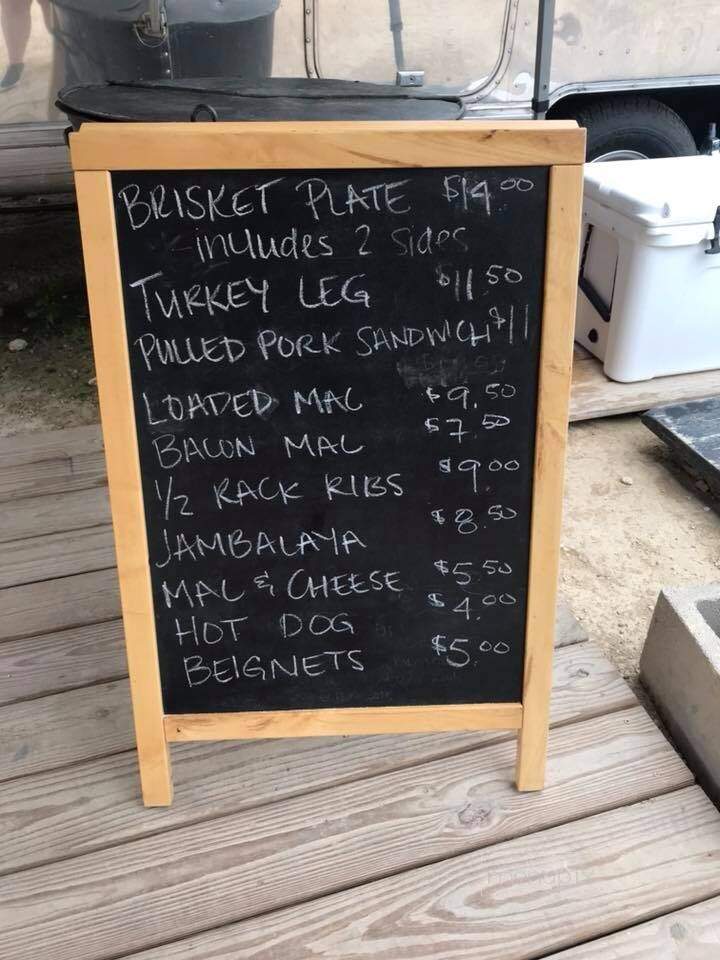 BRISKET PLATE $14.00
- includes 2 sides
TURKEY LEG $11.50
PULLED PORK SANDWICH $11
LOADED MAC $9.50
BACON MAC $7.50
1/2 RACK RIBS $9.00
JAMBALAYA $8.50
MAC & CHEESE $5.50
HOT DOG $4.00
BEIGNETS $5.00